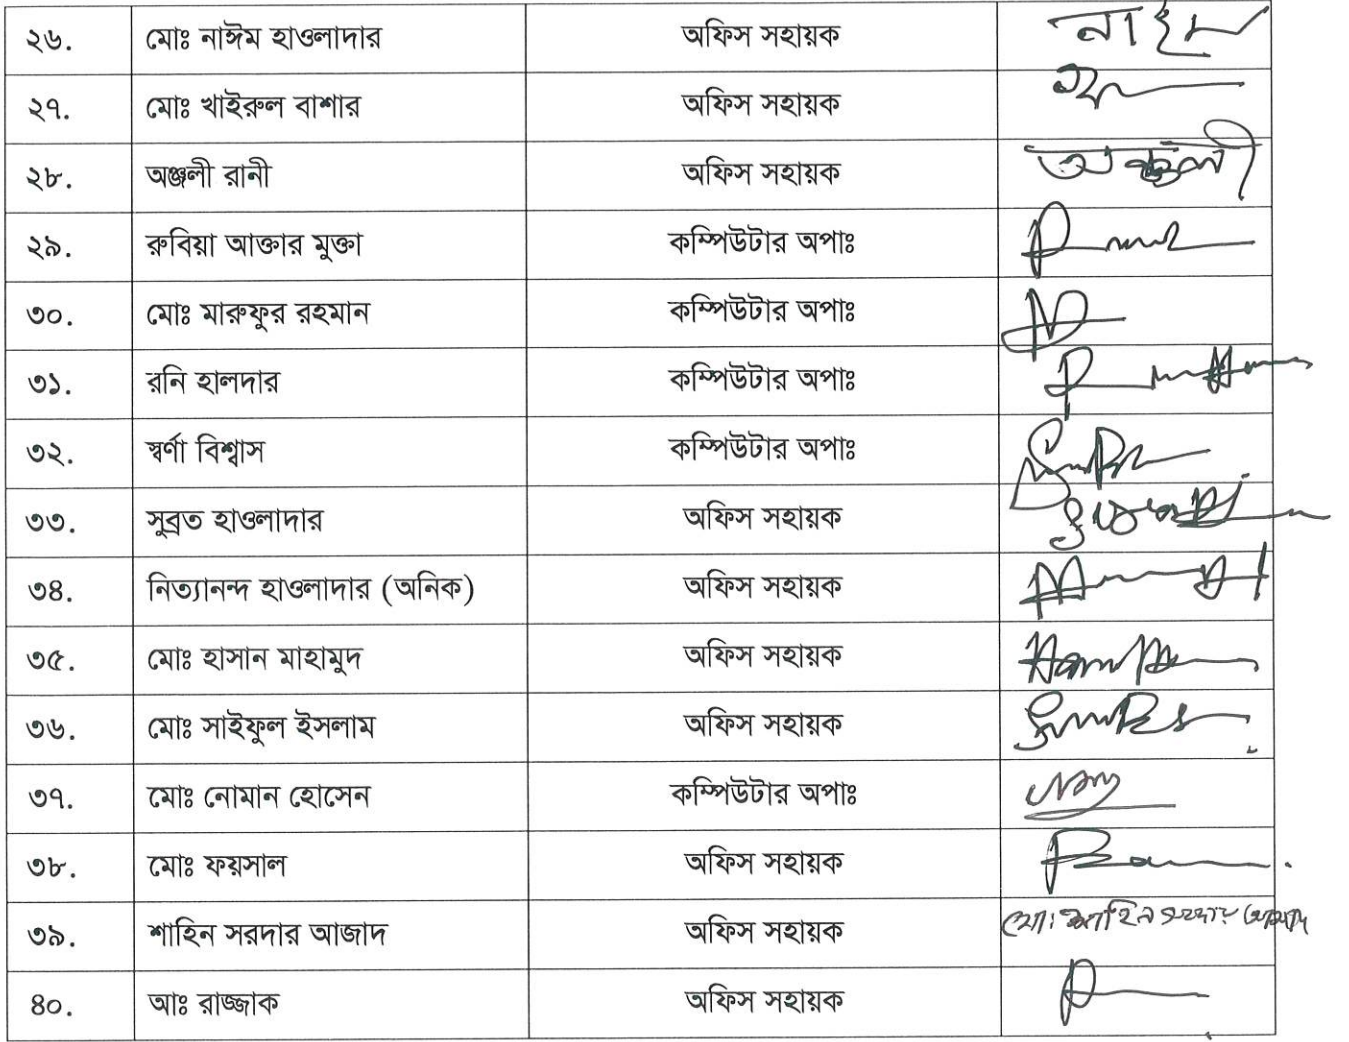 ২৬. মোঃ নাঈম হাওলাদার অফিস সহায়ক
২৭. মোঃ খাইরুল বাশার অফিস সহায়ক
২৮. অঞ্জলী রানী অফিস সহায়ক অঞ্জলী
২৯. রুবিয়া আক্তার মুক্তা কম্পিউটার অপাঃ
৩০. মোঃ মারুফুর রহমান কম্পিউটার অপাঃ
৩১. রনি হালদার কম্পিউটার অপাঃ
৩২. স্বর্ণা বিশ্বাস কম্পিউটার অপাঃ
৩৩. সুব্রত হাওলাদার অফিস সহায়ক
৩৪. নিত্যানন্দ হাওলাদার (অনিক) অফিস সহায়ক
৩৫. মোঃ হাসান মাহামুদ অফিস সহায়ক
৩৬. মোঃ সাইফুল ইসলাম অফিস সহায়ক
৩৭. মোঃ নোমান হোসেন কম্পিউটার অপাঃ
৩৮. মোঃ ফয়সাল অফিস সহায়ক
৩৯. শাহিন সরদার আজাদ অফিস সহায়ক মোঃ শাহিন সরদার আজাদ
৪০. আঃ রাজ্জাক অফিস সহায়ক